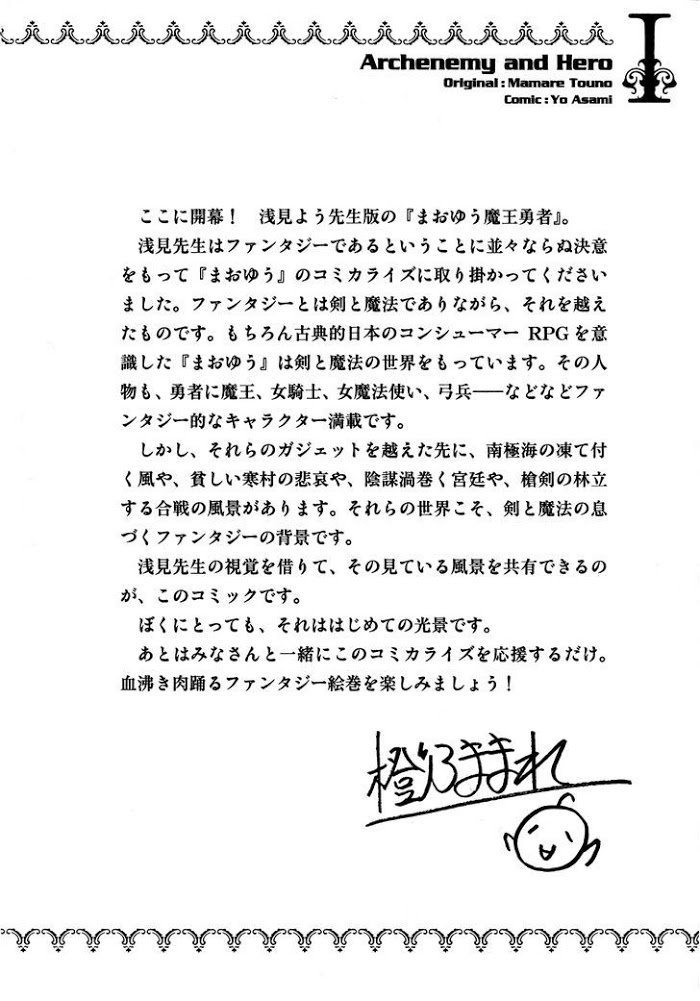 Archenemy and Hero
Original : Mamare Touno
Comic : Yo Asami
I
ここに開幕！　浅見よう先生版の『まおゆう魔王勇者』。
浅見先生はファンタジーであるということに並々ならぬ決意
をもって『まおゆう』のコミカライズに取り掛かってください
ました。ファンタジーとは剣と魔法でありながら、それを越え
たものです。もちろん古典的日本のコンシューマー RPG を意
識した『まおゆう』は剣と魔法の世界をもっています。その人
物も、勇者に魔王、女騎士、女魔法使い、弓兵――などなどファ
ンタジー的なキャラクター満載です。
しかし、それらのガジェットを越えた先に、南極海の凍て付
く風や、貧しい寒村の悲哀や、陰謀渦巻く宮廷や、槍剣の林立
する合戦の風景があります。それらの世界こそ、剣と魔法の息
づくファンタジーの背景です。
浅見先生の視覚を借りて、その見ている風景を共有できるの
が、このコミックです。
ぼくにとっても、それははじめての光景です。
あとはみなさんと一緒にこのコミカライズを応援するだけ。
血沸き肉踊るファンタジー絵巻を楽しみましょう！
橙乃ままれ